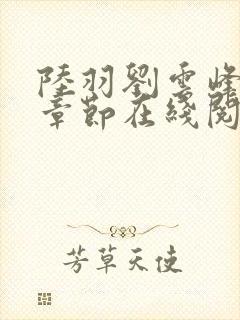 陸羽劉雲峰
章節在綫閱
芳草天使